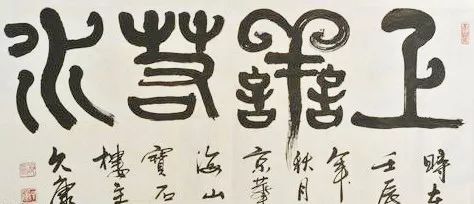 上譱若水
時在
壬辰
年
秋月
京華
海山
寶石
樓主
久